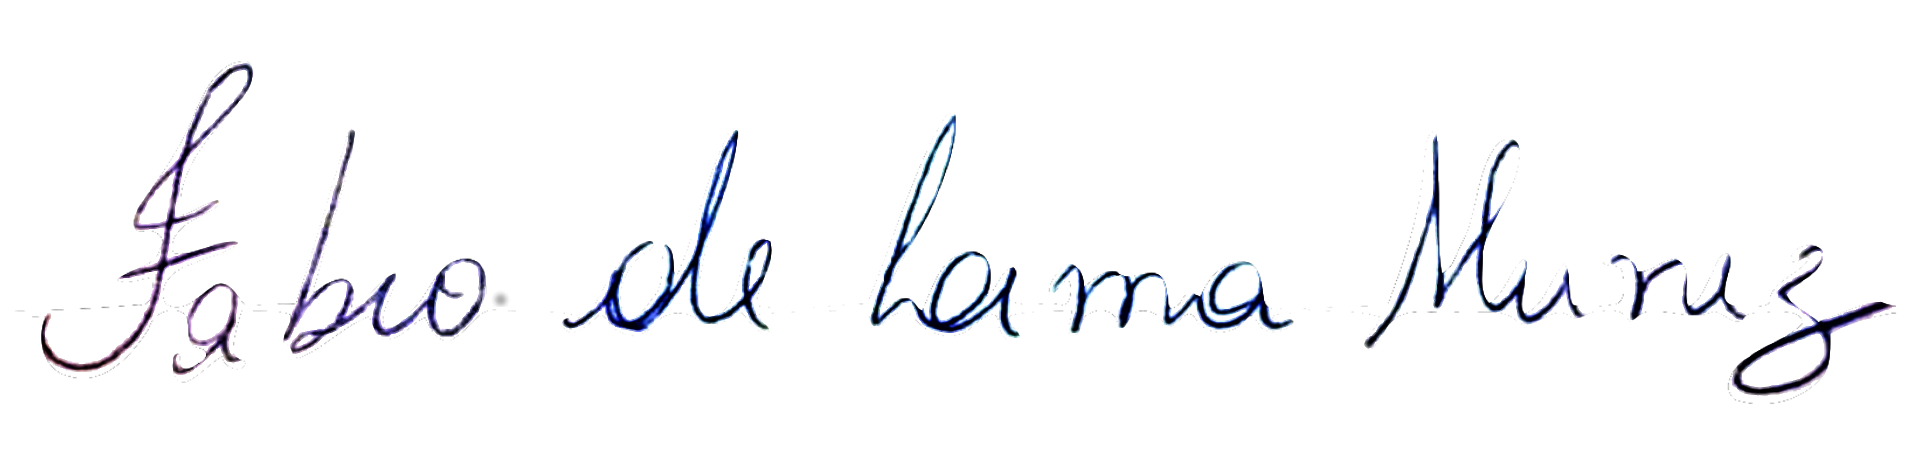 Fabio de Lama Muruz